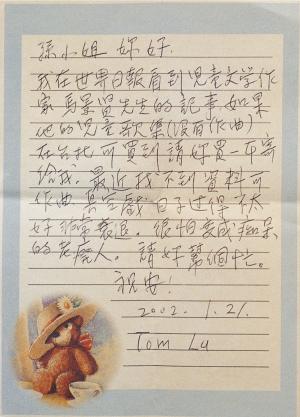 孫小姐 妳好.
我在世界日報看到兒童文學作
家馬景賢先生的記事,如果
他的兒童歌集(沒有作曲)
在台北可買到請妳買一本寄
給我.最近找不到資料可
作曲 日子過得不太
好非常衰退.很怕變成痴呆
的老廢人。請妳幫個忙。
祝安!
2002. 1. 21.
Tom Lu